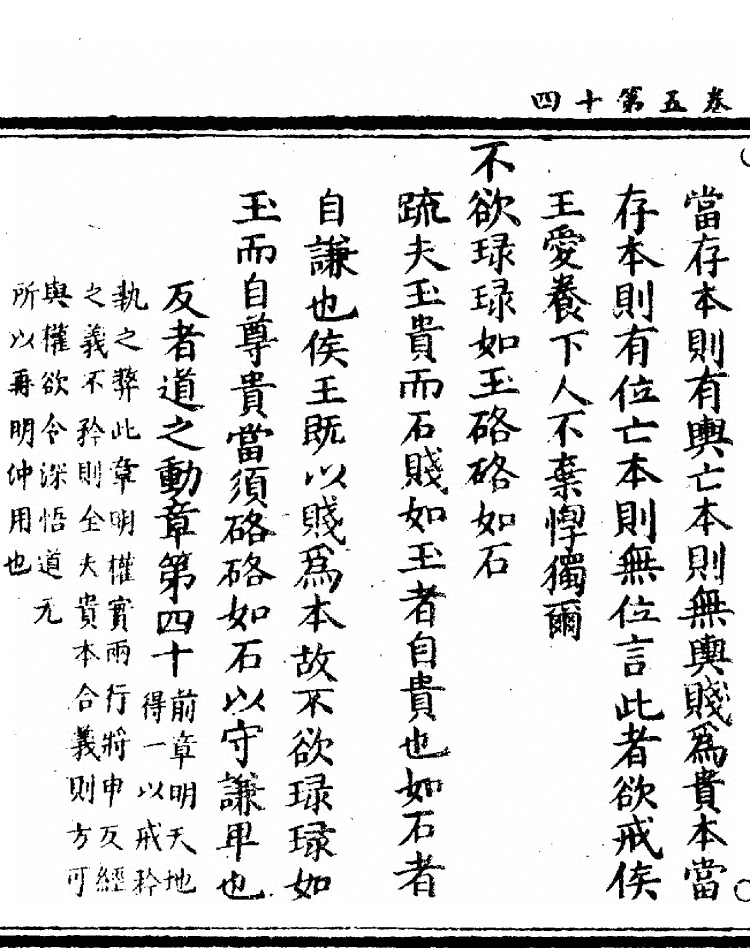 卷五第十四
當存本則有輿亡本則無輿賤爲貴本當
存本則有位亡本則無位言此者欲戒侯
王愛養下人不棄惸獨爾
不欲琭琭如玉硌硌如石
疏夫玉貴而石賤如玉者自貴也如石者
自謙也侯王既以賤爲本故不欲琭琭如
玉而自尊貴當須硌硌如石以守謙卑也
反者道之動章第四十
前章明天地
得一以戒矜
執之弊此章明權實兩行將申反經
之義不矜則全夫貴本合義則方可
與權欲令深悟道无
所以再明沖用也